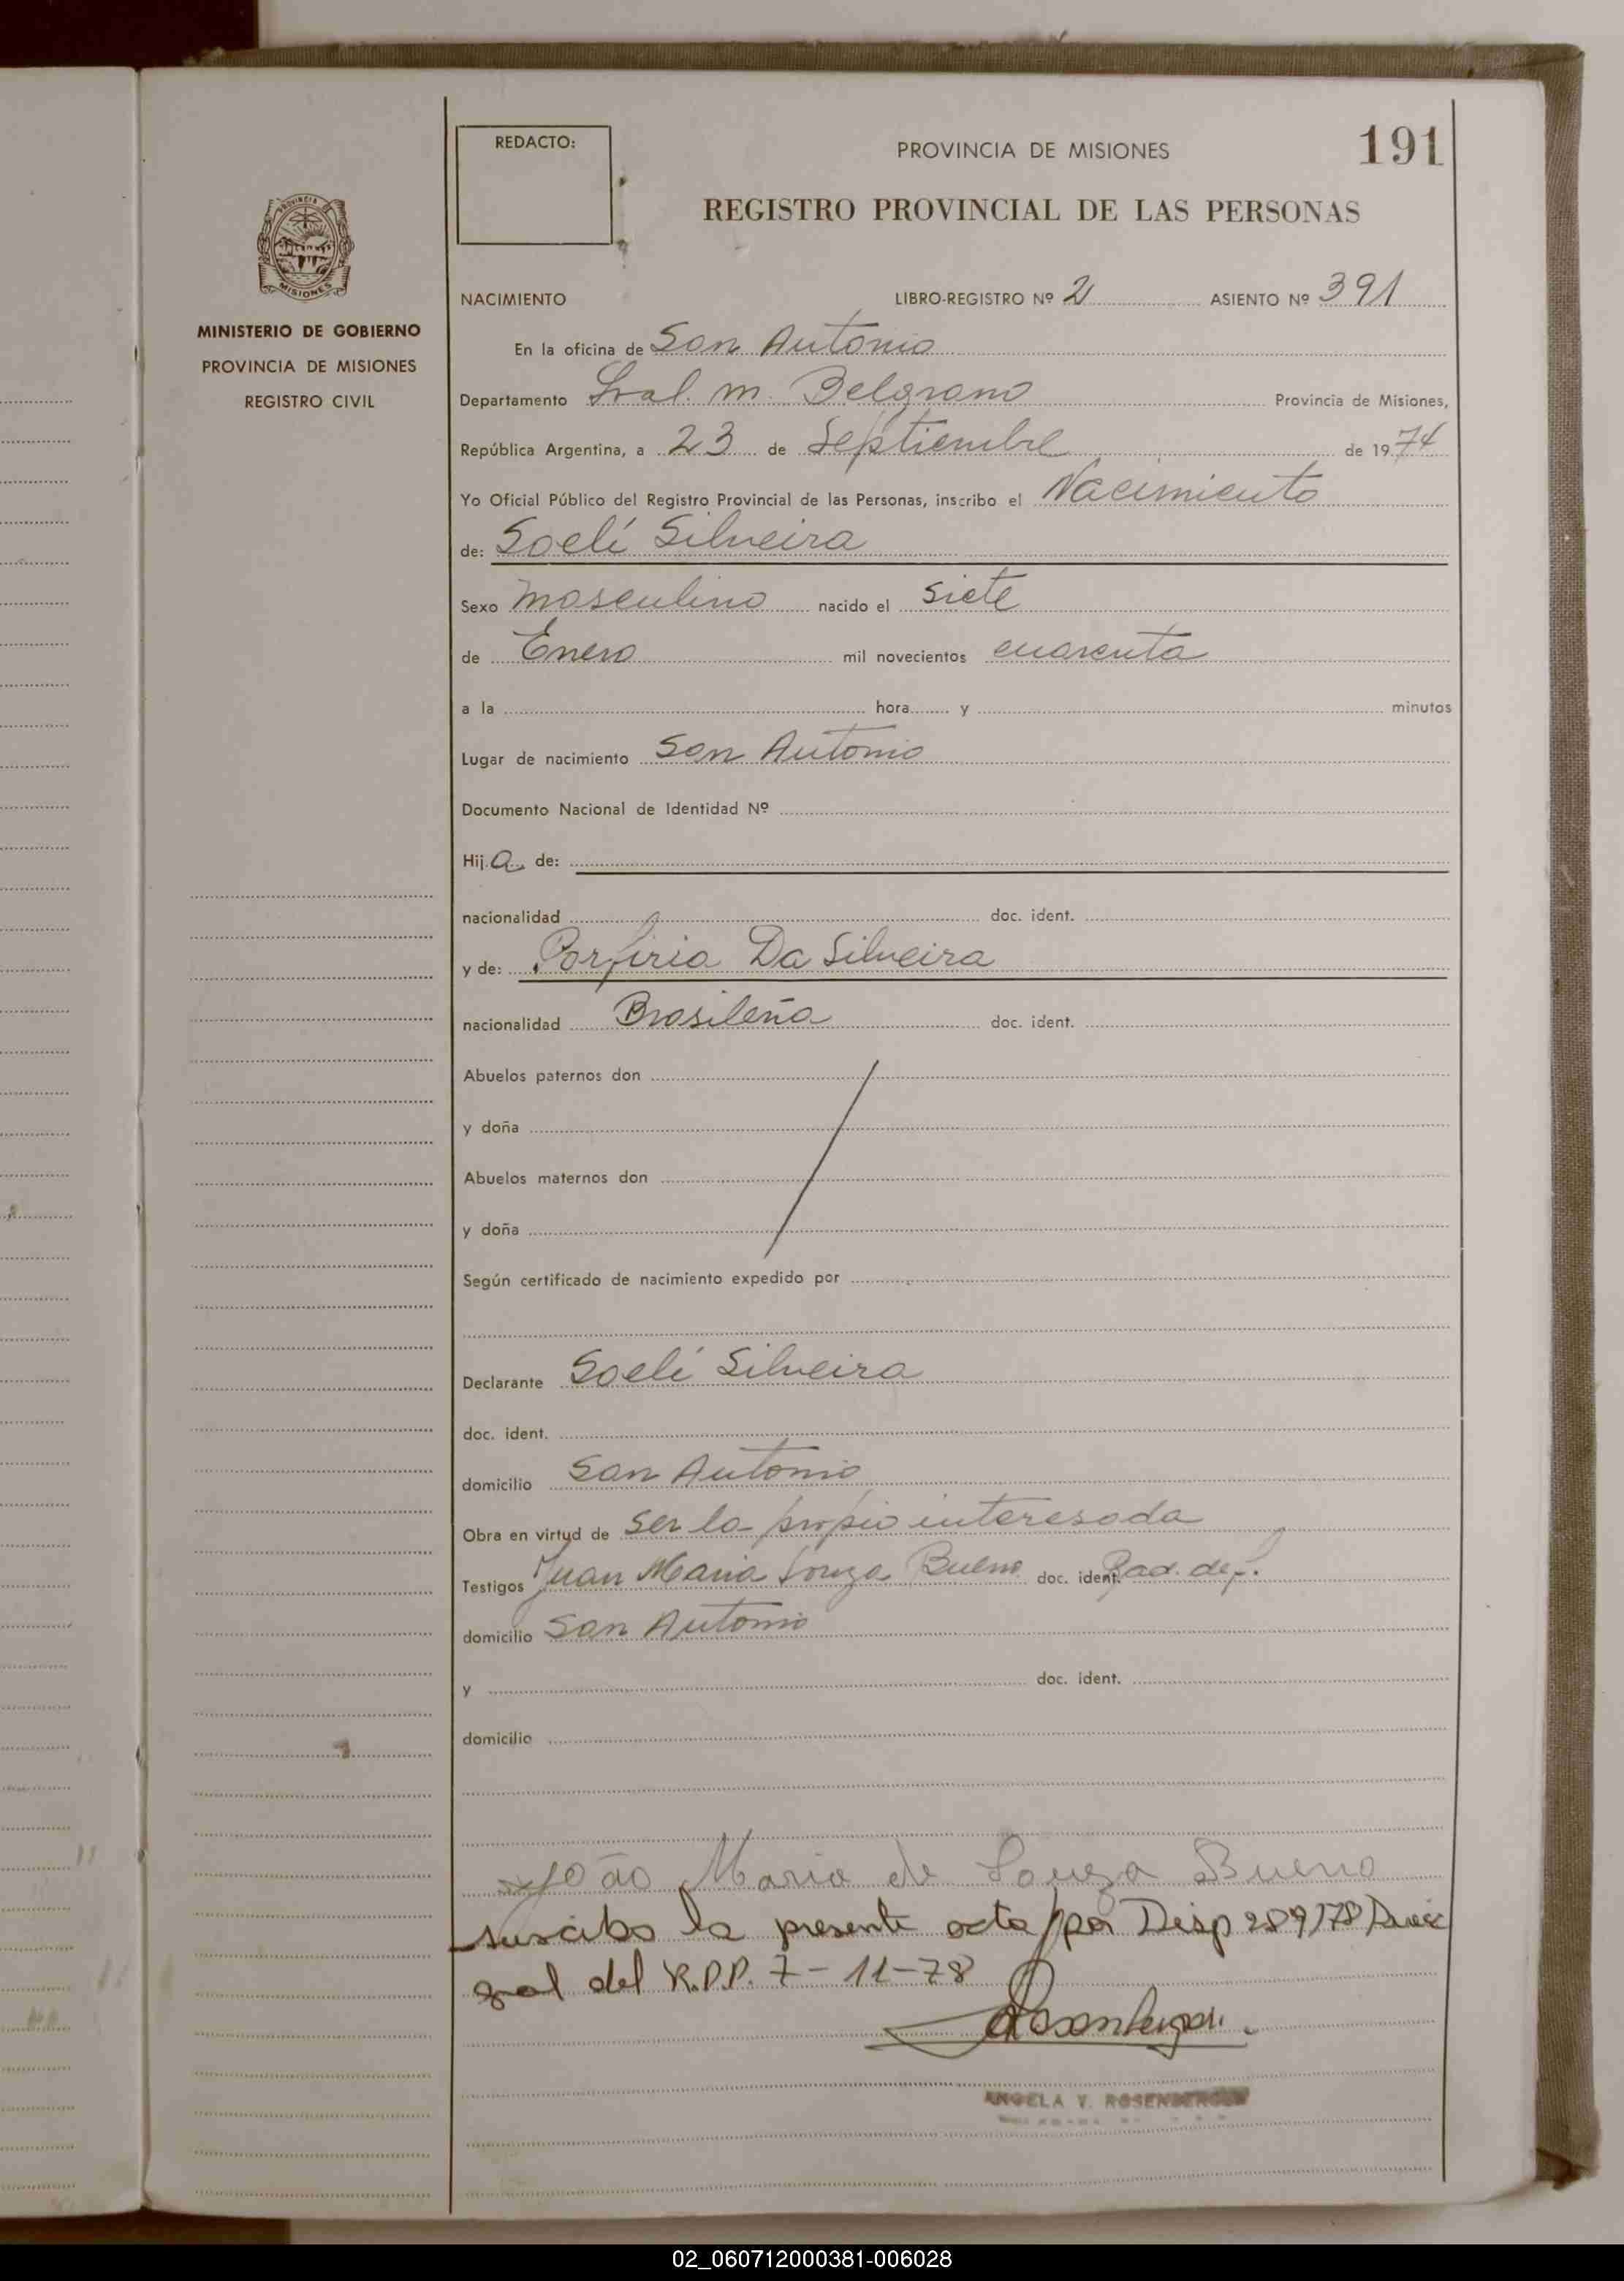 REDACTO:
PROVINCIA DE MISIONES
191
REGISTRO PROVINCIAL DE LAS PERSONAS
PROVINCIA DE
MISIONES
MINISTERIO DE GOBIERNO
PROVINCIA DE MISIONES
REGISTRO CIVIL
NACIMIENTO LIBRO-REGISTRO Nº 2 ASIENTO Nº 391
En la oficina de San Antonio
Departamento Gral. M. Belgrano Provincia de Misiones,
República Argentina, a 23 de Septiembre de 1974
Yo Oficial Público del Registro Provincial de las Personas, inscribo el Nacimiento
de: Soelí Silveira
Sexo masculino nacido el siete
de Enero mil novecientos cuarenta
a la hora y minutos
Lugar de nacimiento San Antonio
Documento Nacional de Identidad Nº
Hija de:
nacionalidad doc. ident.
y de: Porfiria Da Silveira
nacionalidad Brasileña doc. ident.
Abuelos paternos don
y doña
Abuelos maternos don
y doña
Según certificado de nacimiento expedido por
Declarante Soelí Silveira
doc. ident.
domicilio San Antonio
Obra en virtud de ser la propio interesada
Testigos Juan Maria Souza Bueno doc. ident. Rad. def.
domicilio San Antonio
y doc. ident.
domicilio
João Maria de Souza Bueno
suscribo la presente acta por Disp 289/78 Direc
gral del R.P.P. 7-11-78
ANGELA Y. ROSENBERGER
02_060712000381-006028